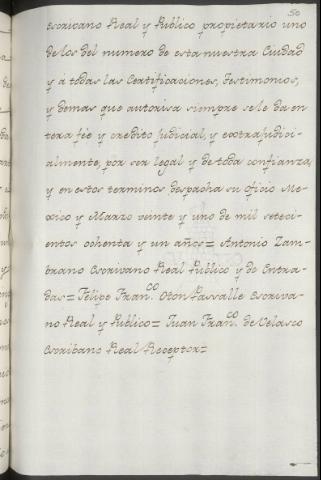 50
Escribano Real y Publico propietario uno
de los del numero de esta nuestra Ciudad
y á todas las Certificaciones, Testimonios,
y demas que autorisa siempre se le da en
tera fée y credito judicial, y extrajudici-
almente, por ser legal y de toda confianza,
y en estos terminos despacha su oficio Me-
xico y Marzo veinte y uno de mil seteci-
entos ochenta y un años = Antonio Zam-
brano Escrivano Real Publico y de Entra-
das = Felipe Fran.co Oton Passalle Escriva-
no Real y Publico = Juan Fran.co de Velasco
Escribano Real Receptor =